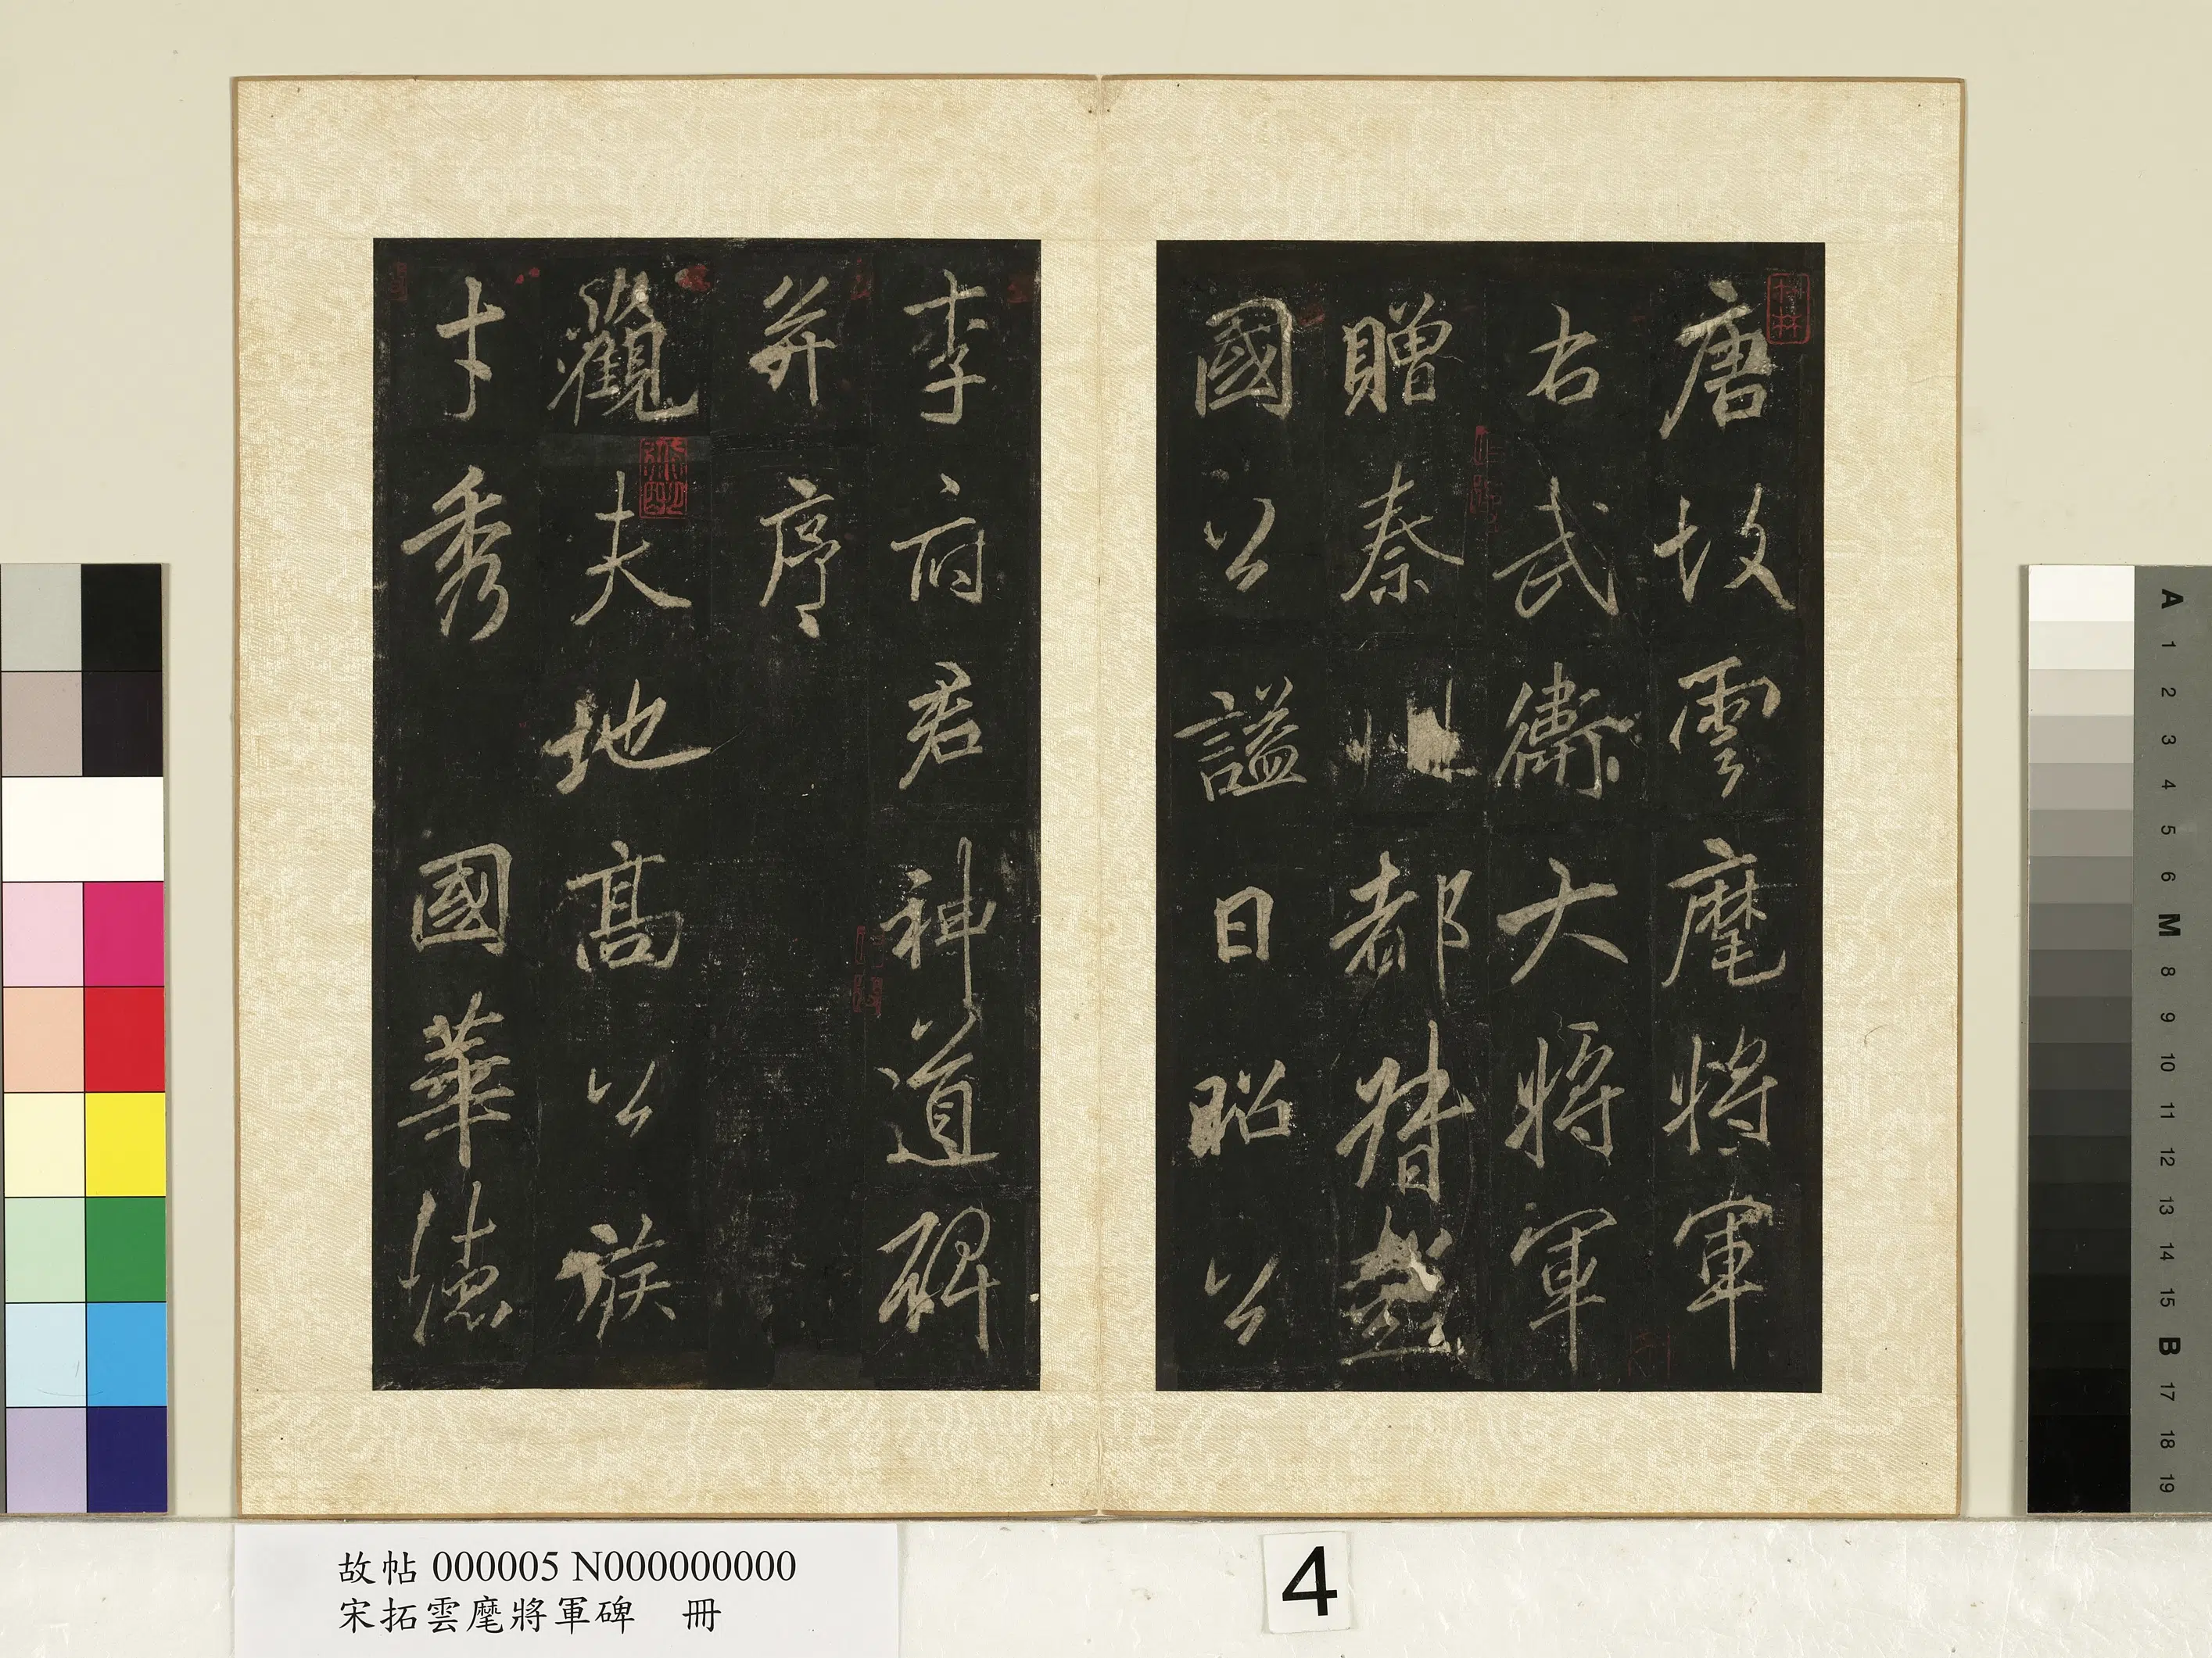 唐故雲麾將軍
右武衛大將軍
贈秦州都督彭
國公謚曰昭公
李府君神道碑
并序
觀夫地高公族
才秀國華德
故帖 000005 N000000000
宋拓雲麾將軍碑 冊
4
A
1
2
3
4
5
6
M
8
9
10
11
12
13
14
15
B
17
18
19